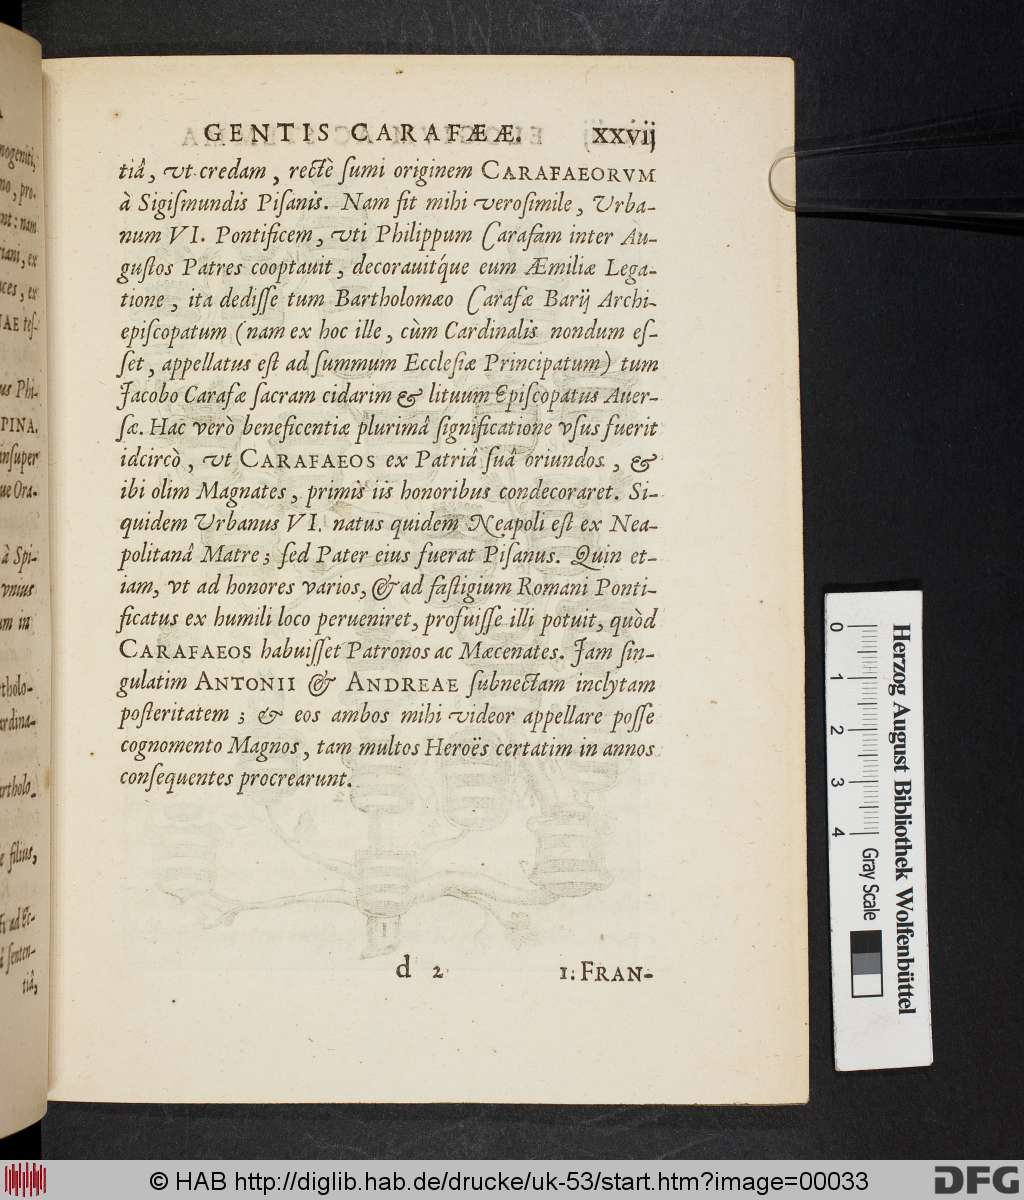 GENTIS CARAFÆÆ. xxvij
tiâ, vt credam, rectè ſumi originem CARAFAEORVM
à Sigiſmundis Piſanis. Nam fit mihi veroſimile, Vrba-
num VI. Pontificem, vti Philippum Carafam inter Au-
guſtos Patres cooptauit, decorauitq́ue eum Æmiliæ Lega-
tione, ita dediſſe tum Bartholomæo Carafæ Barij Archi-
epiſcopatum (nam ex hoc ille, cùm Cardinalis nondum eſ-
ſet, appellatus eſt ad ſummum Eccleſiæ Principatum) tum
Jacobo Carafæ ſacram cidarim & lituum Epiſcopatus Auer-
ſæ. Hac verò beneficentiæ plurimâ ſignificatione vſus fuerit
idcircò, vt CARAFAEOS ex Patriâ ſuâ oriundos, &
ibi olim Magnates, primis iis honoribus condecoraret. Si-
quidem Vrbanus VI. natus quidem Neapoli eſt ex Nea-
politanâ Matre; ſed Pater eius fuerat Piſanus. Quin et-
iam, vt ad honores varios, & ad faſtigium Romani Ponti-
ficatus ex humili loco perueniret, profuiſſe illi potuit, quòd
CARAFAEOS habuiſſet Patronos ac Mæcenates. Jam ſin-
gulatim ANTONII & ANDREAE ſubnectam inclytam
poſteritatem; & eos ambos mihi videor appellare poſſe
cognomento Magnos, tam multos Heroës certatim in annos
conſequentes procrearunt.
d 2 1. FRAN-
nogeniti,
no, pro-
nt: nam
iani, ex
ces, ex
NAE teſ-
us Phi-
PINA.
inſuper
ue Ora-
à Spi-
vnius
um in
rtholo-
ardina-
artholo-
e filius,
ſenten-
tiâ,
0 1 2 3 4
Gray Scale
Herzog August Bibliothek Wolfenbüttel
© HAB http://diglib.hab.de/drucke/uk-53/start.htm?image=00033
DFG